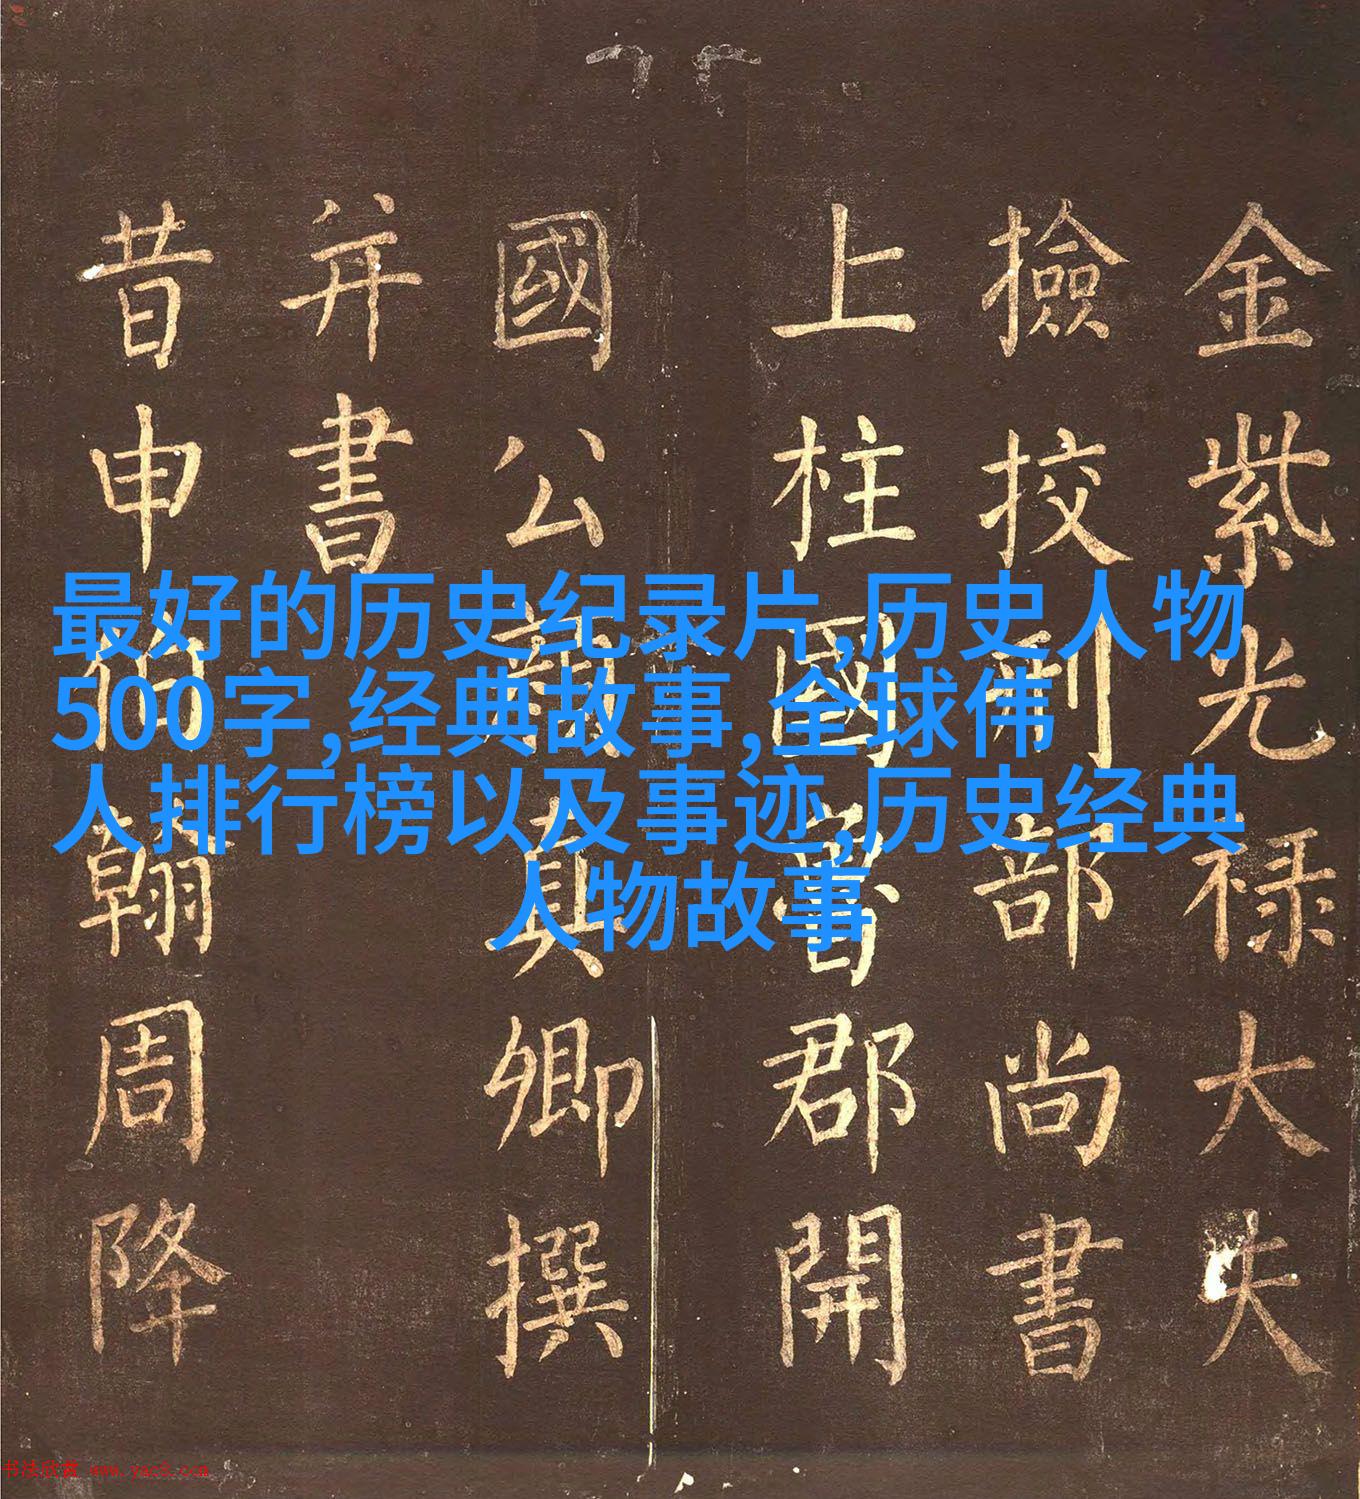 金紫光禄大夫
撿挍刑部尚書
上柱國魯郡開
國公顏真卿撰
并書
昔申伯翰周降
最好的历史纪录片,历史人物
500字,经典故事,全球伟
人排行榜以及事迹,历史经典
人物故事
书法欣赏 www.yac8.com